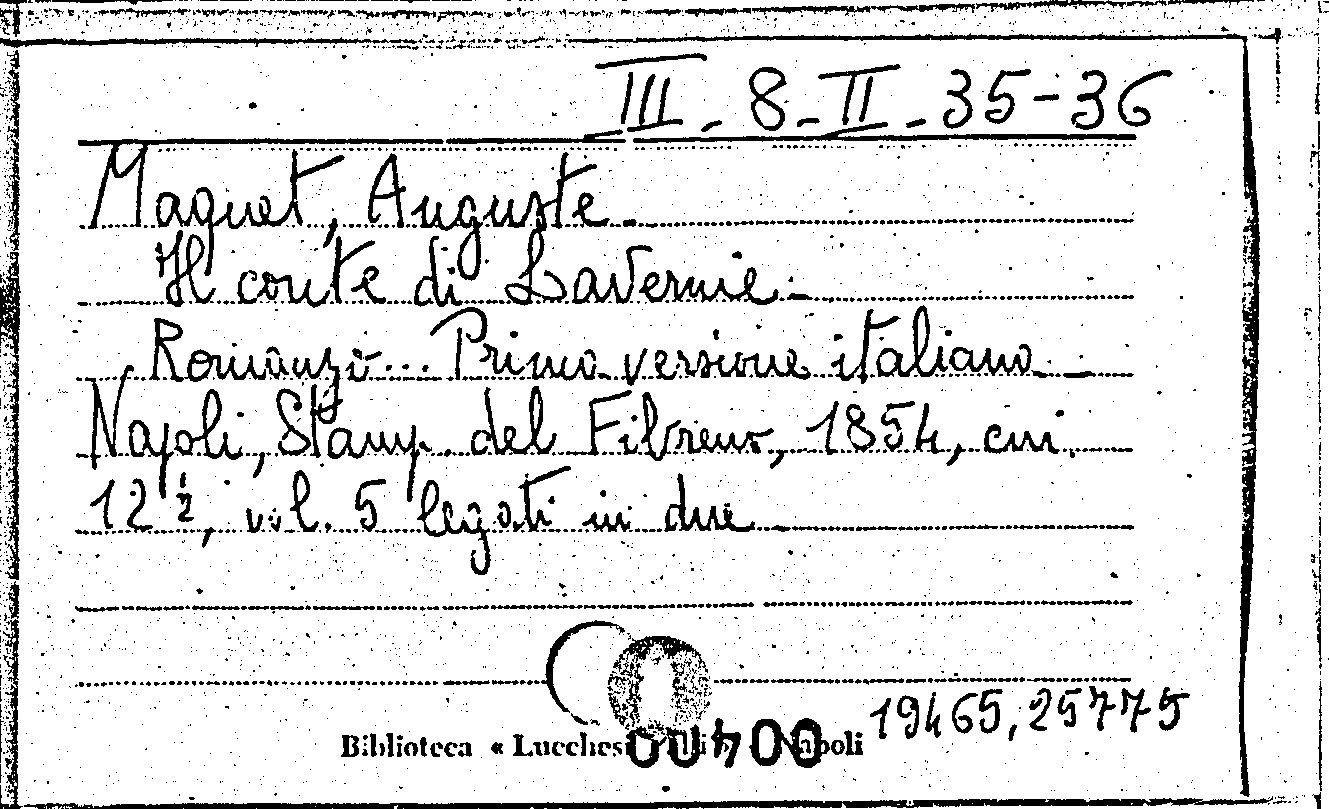 III - 8 - II - 35-36
Maquet, Auguste.
Il conte di Lavernie.
Romanzo... Prima versione italiana.
Napoli, Stamp. del Fibreno, 1854, cm.
12 ½, vol. 5 legati in due
19465, 25775
Biblioteca « Lucchesi Palli » Napoli
00400